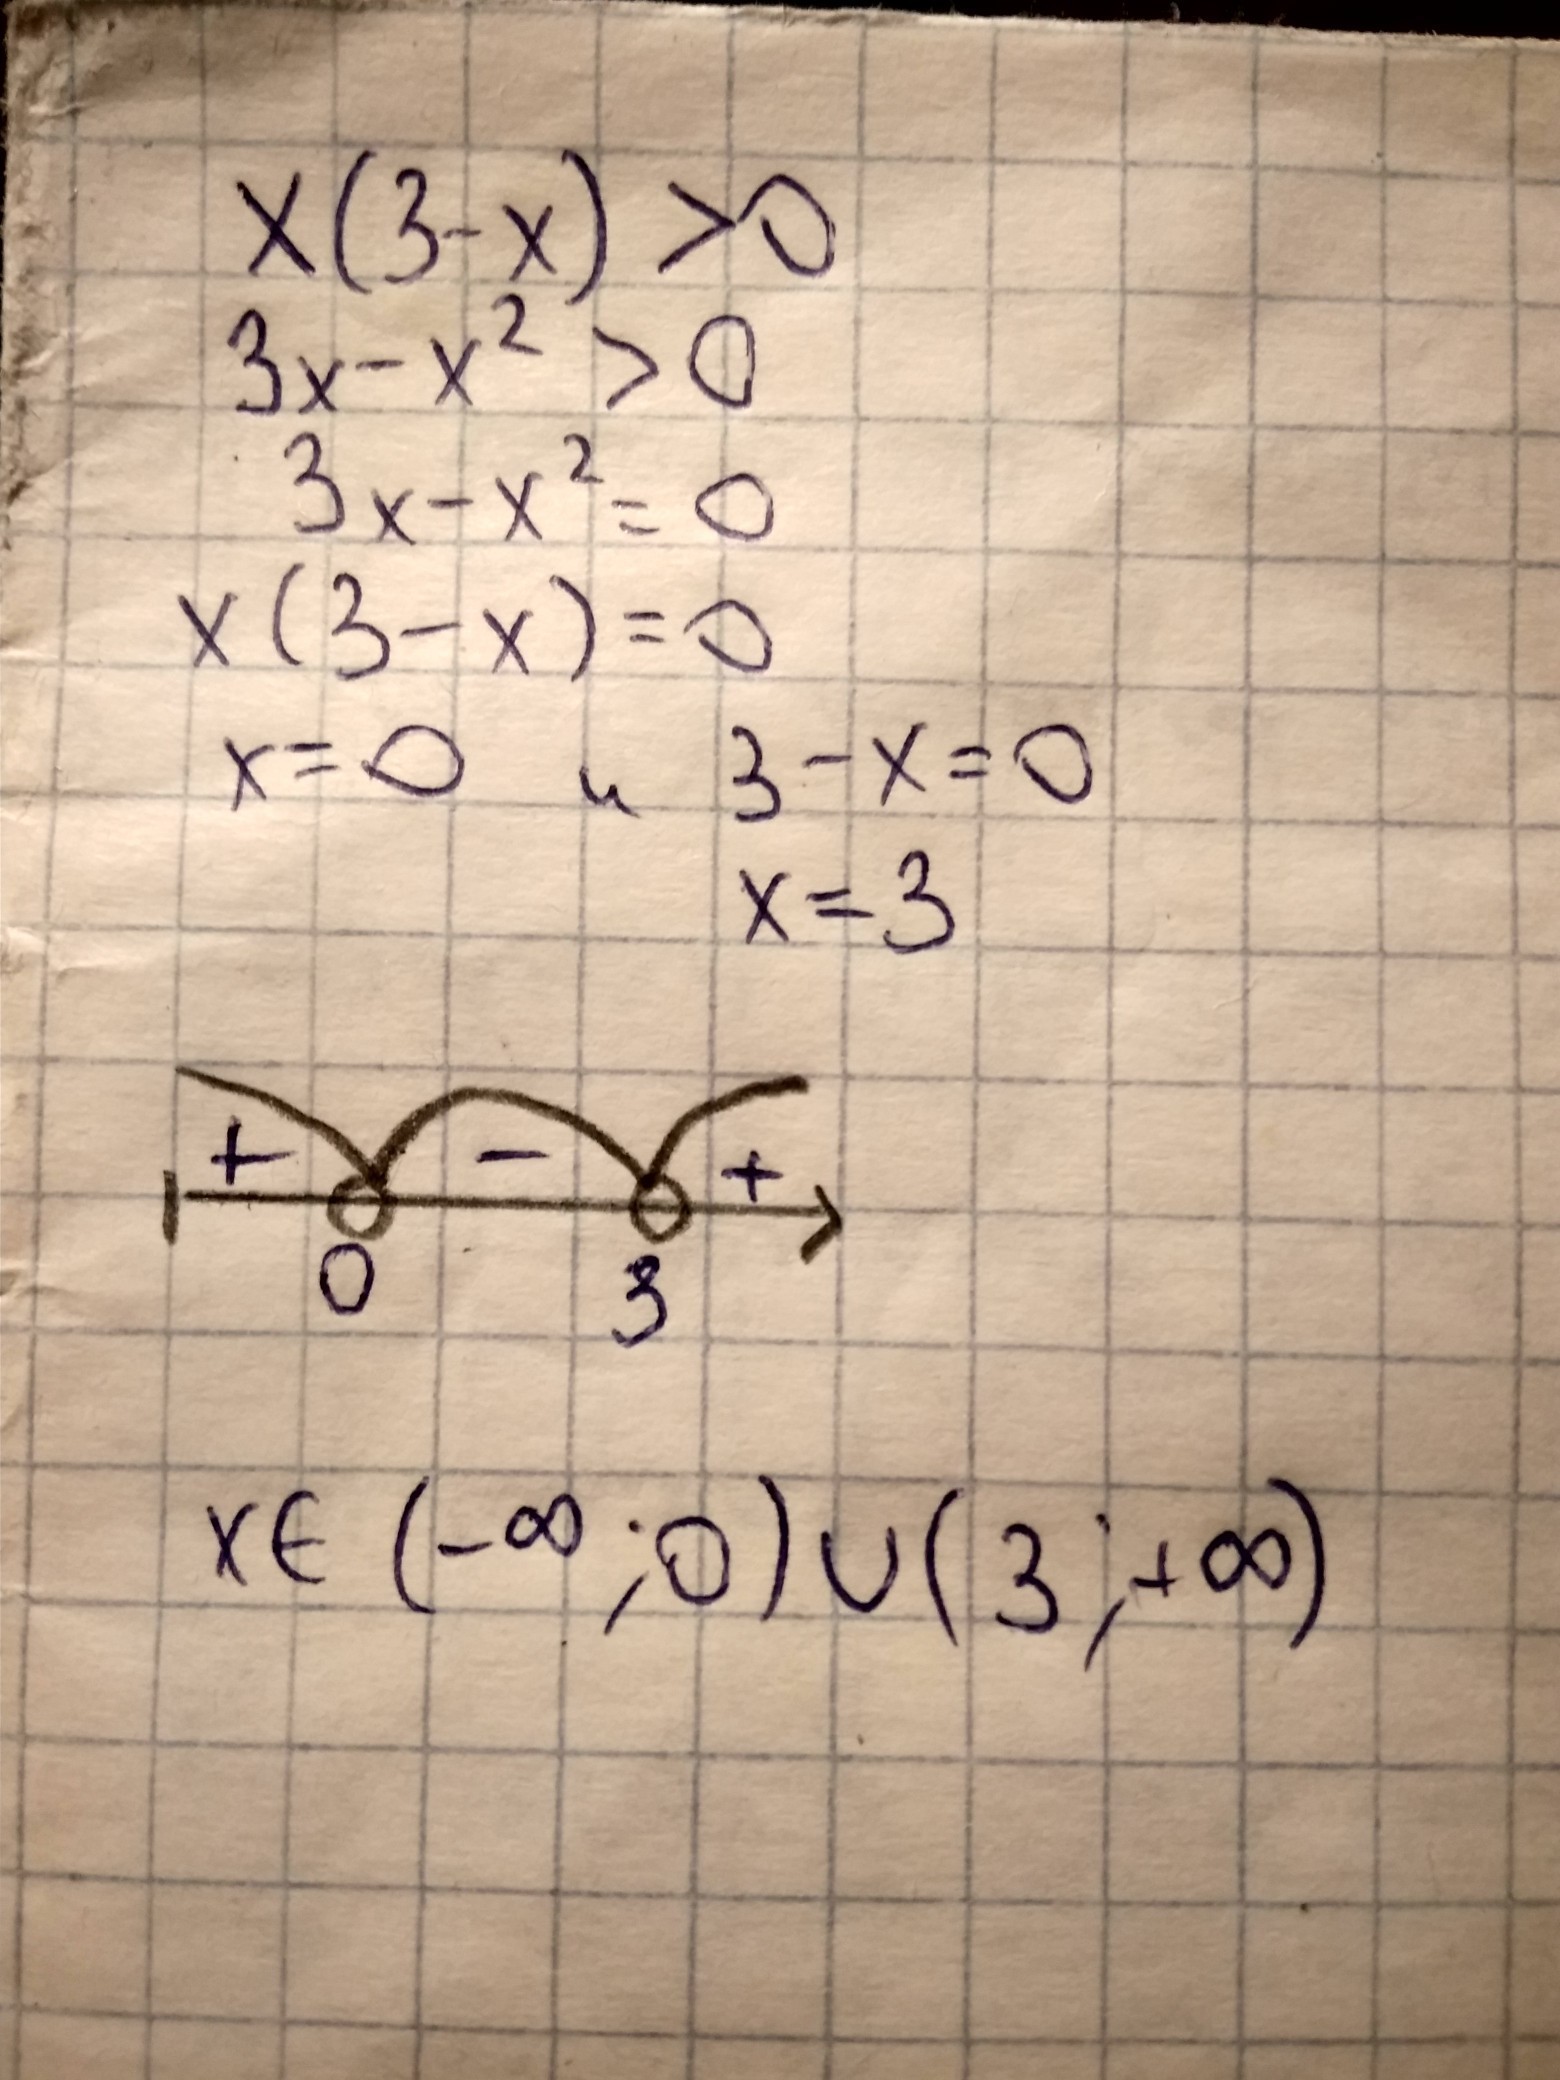 x(3-x)>0
3x-x²>0
3x-x²=0
x(3-x)=0
x=0 и 3-x=0
x=3
+ - +
0 3
x∈(-∞;0)∪(3;+∞)